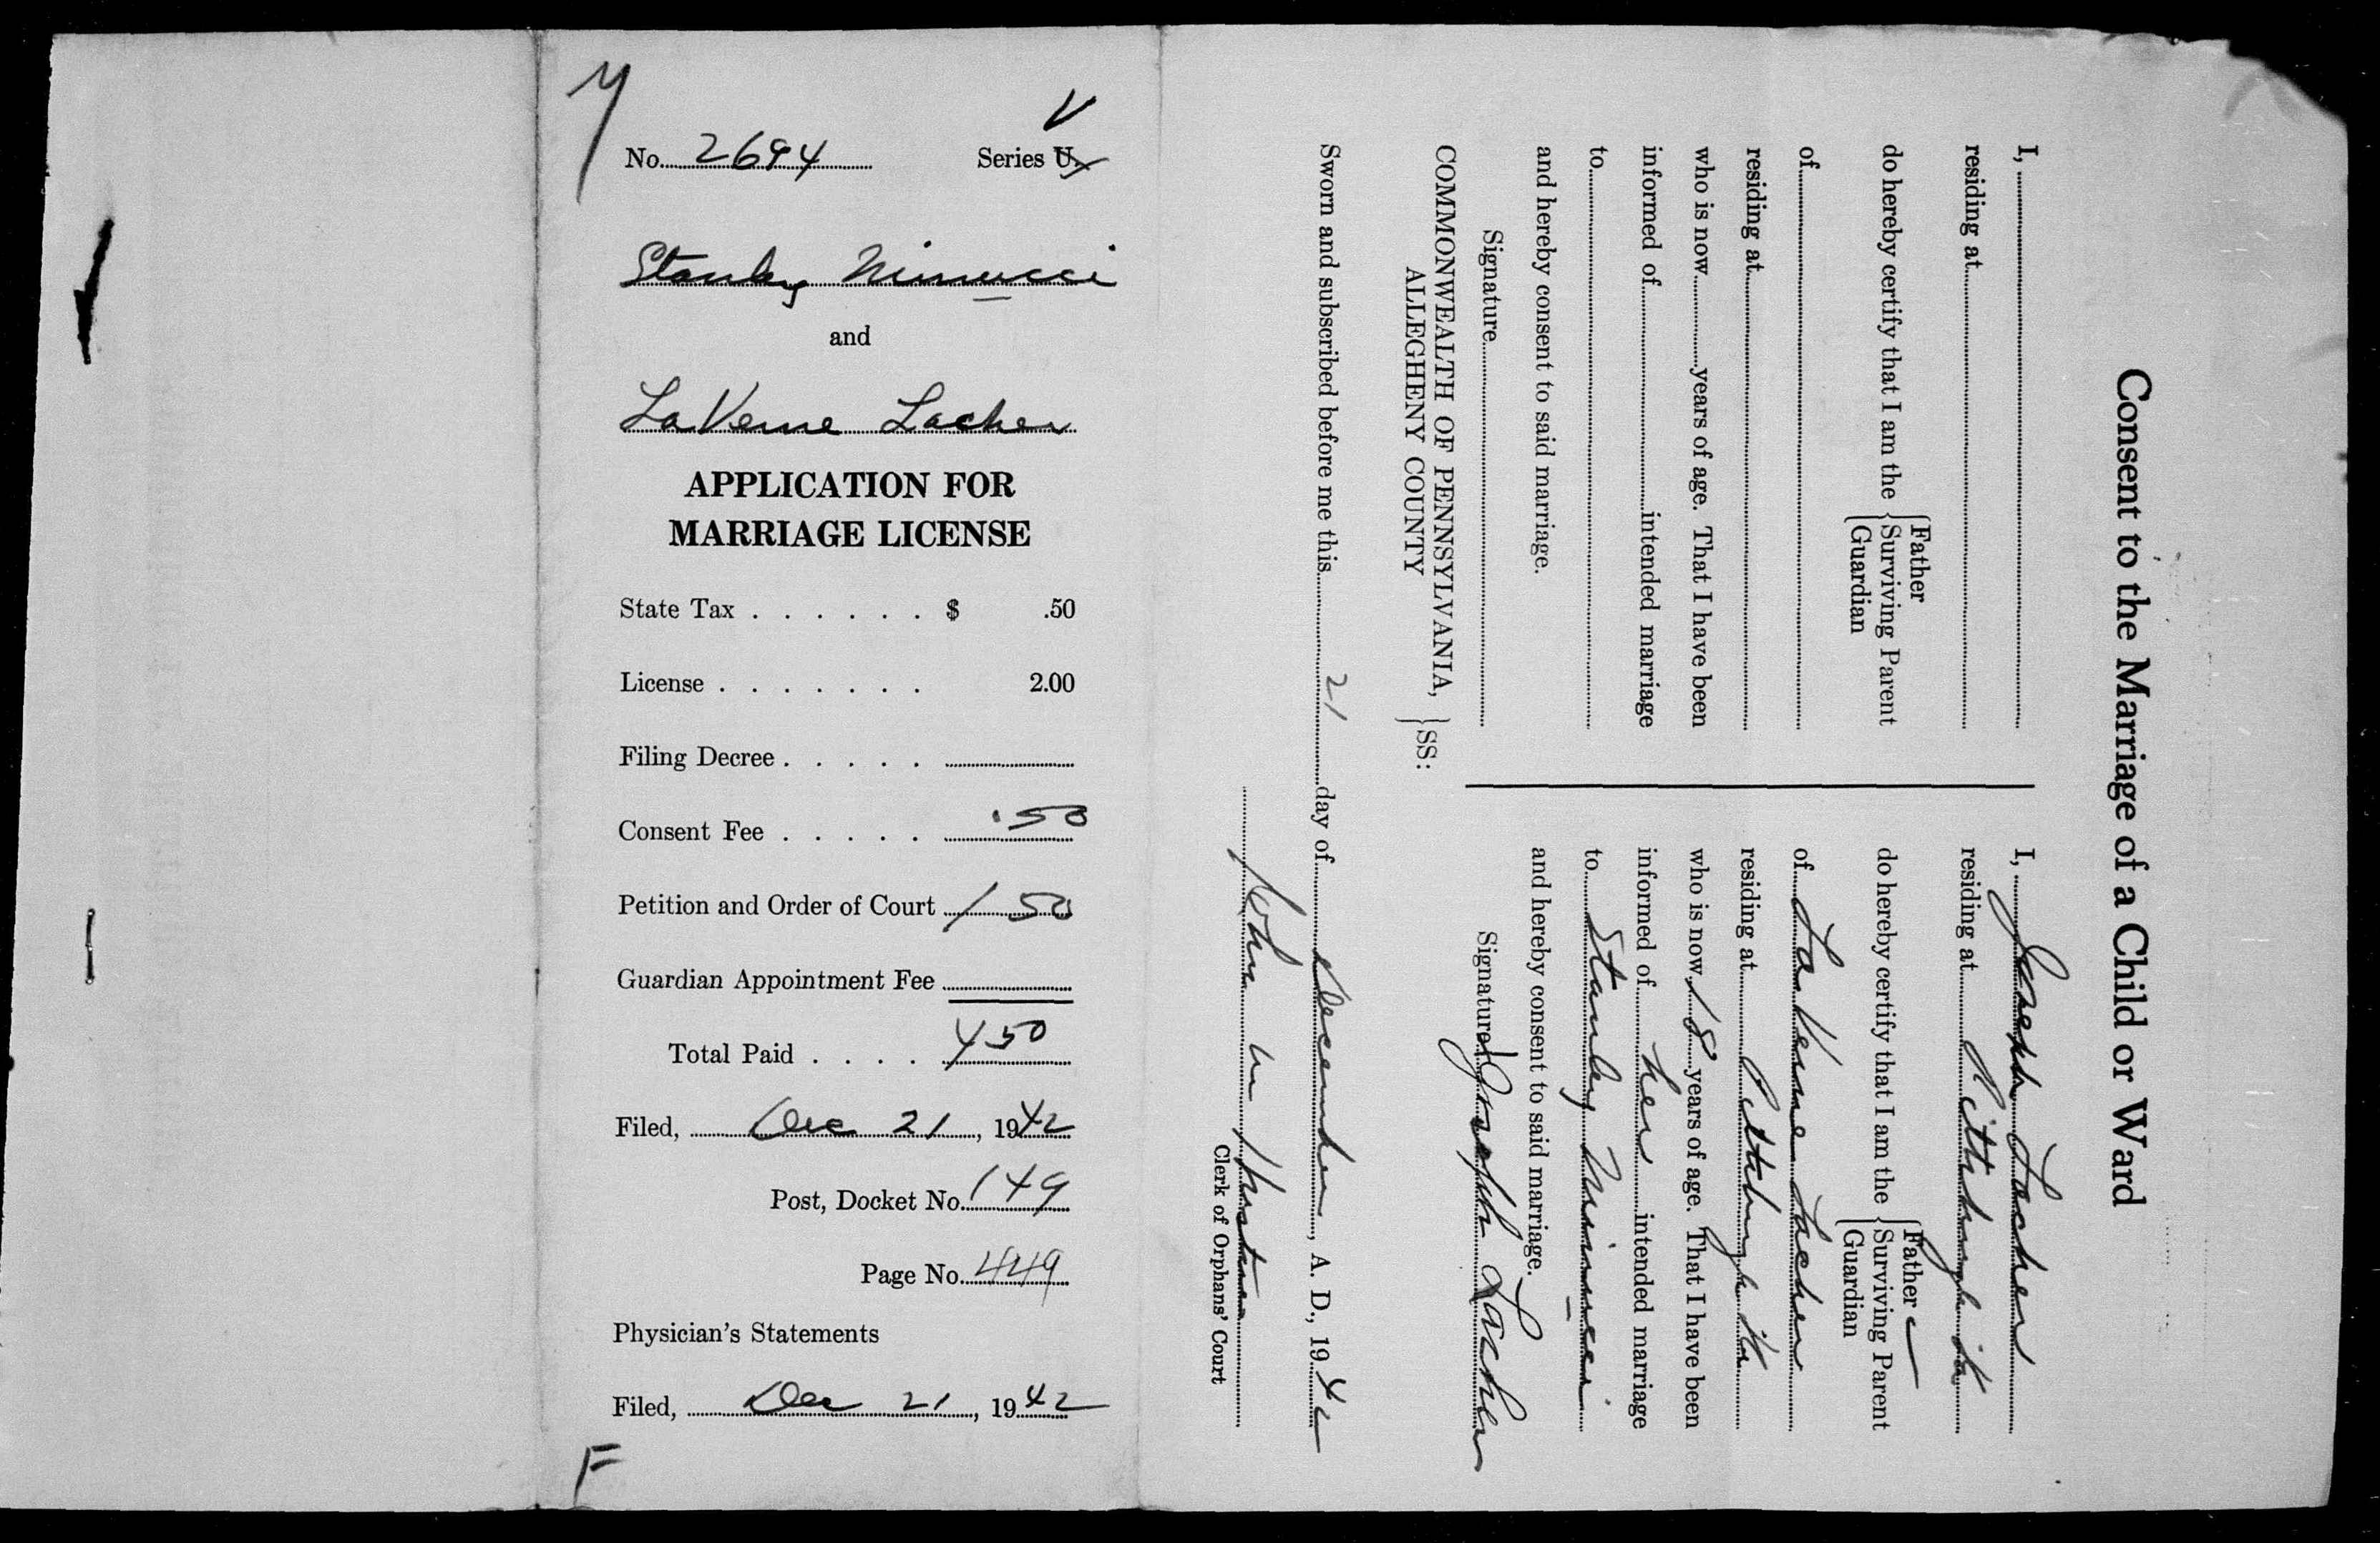 No. 2694 Series U. V
Stanley Minnucci
and
LaVerne Lacher
APPLICATION FOR
MARRIAGE LICENSE
State Tax . . . . . . $ .50
License . . . . . . . 2.00
Filing Decree . . . . .
Consent Fee . . . . . .50
Petition and Order of Court 1 50
Guardian Appointment Fee
Total Paid . . . . 4 50
Filed, Dec 21, 1942
Post, Docket No. 149
Page No. 449
Physician's Statements
Filed, Dec 21, 1942
F
Consent to the Marriage of a Child or Ward
I,
residing at
do hereby certify that I am the { Father
Surviving Parent
Guardian
of
residing at
who is now years of age. That I have been
informed of intended marriage
to
and hereby consent to said marriage.
Signature
I, Joseph Lacher
residing at Pittsburgh
do hereby certify that I am the { Father
Surviving Parent
Guardian
of LaVerne Lacher
residing at Pittsburgh
who is now 18 years of age. That I have been
informed of her intended marriage
to Stanley Minnucci
and hereby consent to said marriage.
Signature Joseph Lacher
COMMONWEALTH OF PENNSYLVANIA, } SS:
ALLEGHENY COUNTY
Sworn and subscribed before me this 21 day of December, A. D., 1942
John
Clerk of Orphans' Court